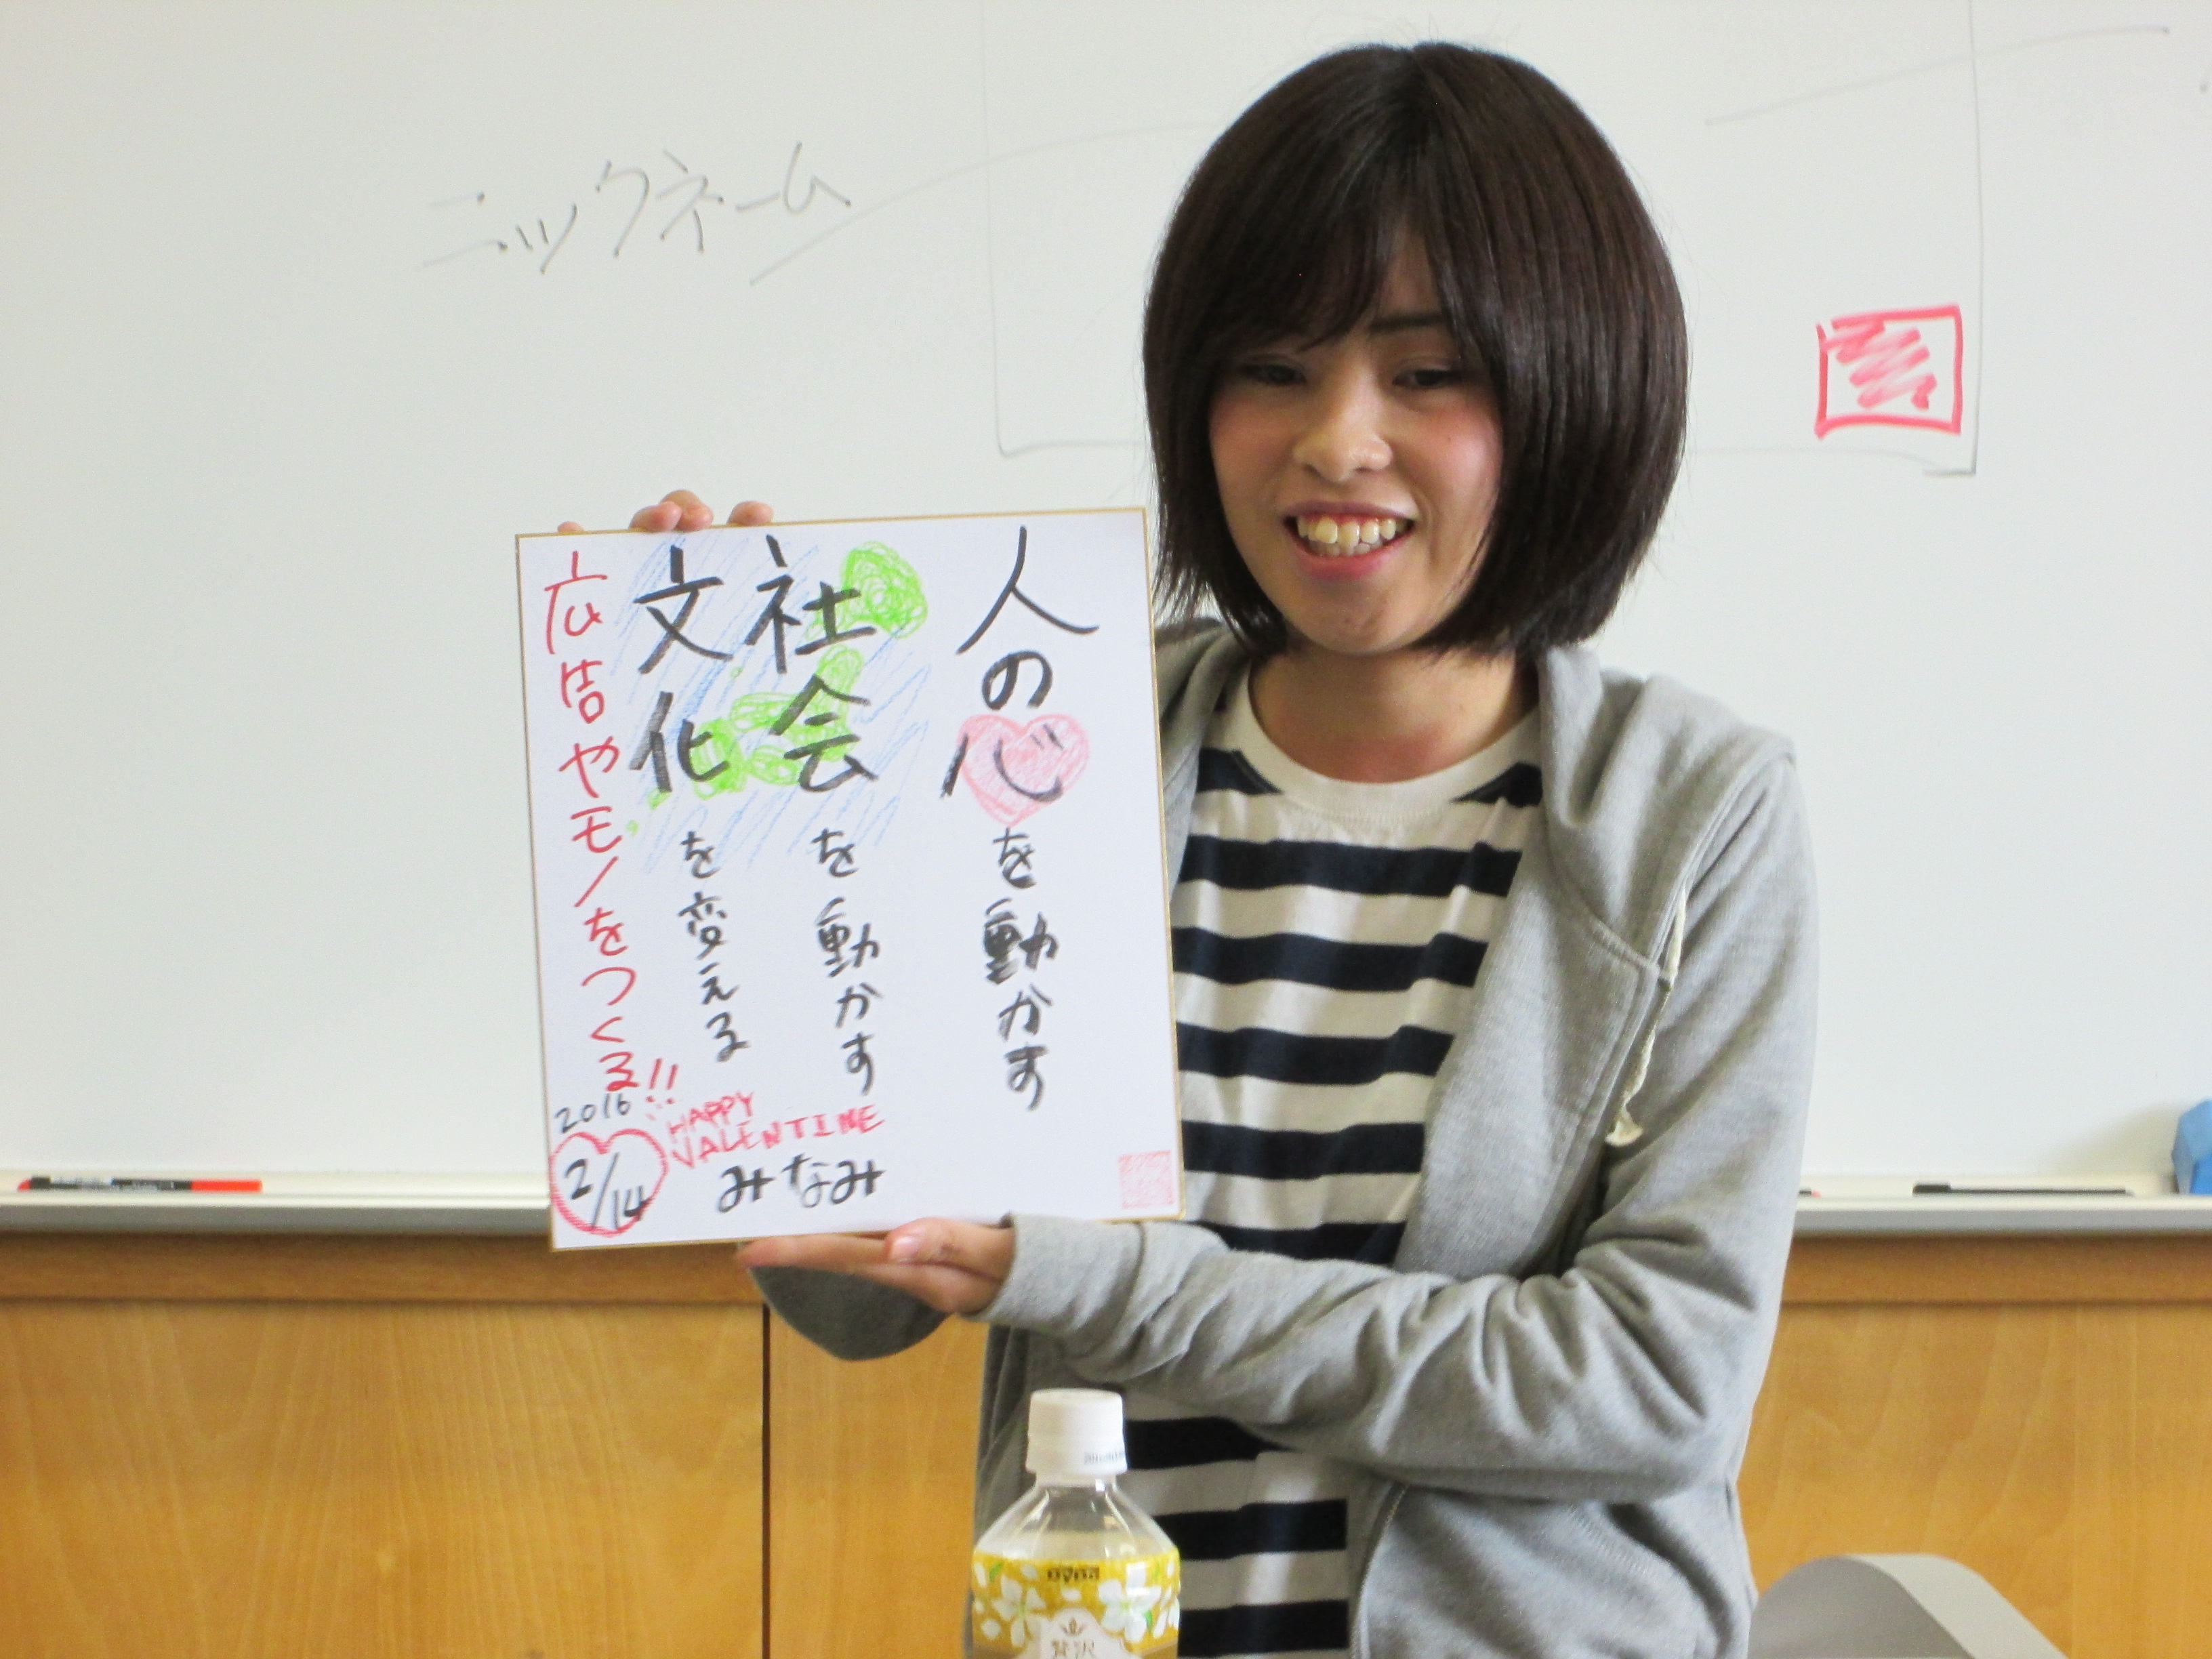 ニックネーム
人の心を動かす
社会を動かす
文化を変える
広告やモノをつくる!!
2016
2/14
HAPPY
VALENTINE
みなみ
贅沢